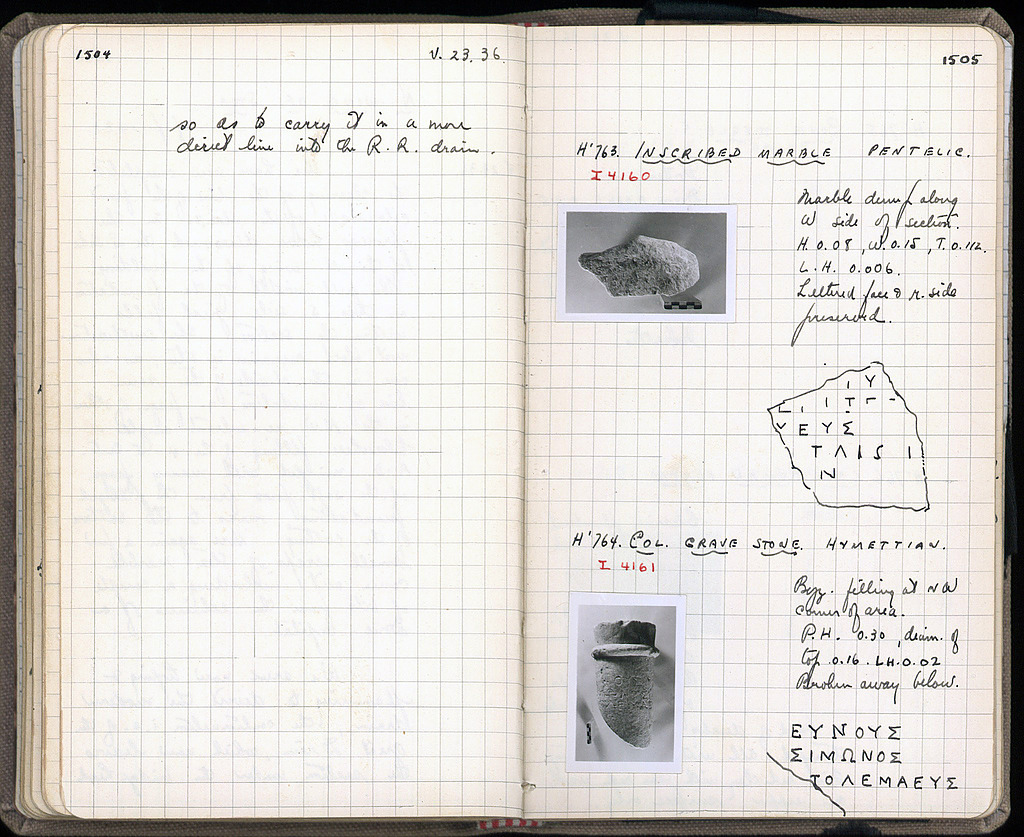 1504
V. 23. 36.
so as to carry it in a more
direct line into the R. R. drain.
1505
H'763. INSCRIBED MARBLE PENTELIC.
I 4160
Marble dump along
W side of section.
H. 0.08, W. 0.15, T. 0.112.
L. H. 0.006.
Lettered face & r. side
preserved.
Ι Υ
Ε Υ Σ
Τ Λ Ι Σ Ι
Ν
H'764. COL. GRAVE STONE. HYMETTIAN.
I 4161
Byz. filling at NW
corner of area.
P.H. 0.30, diam. of
top 0.16. LH. 0.02
Broken away below.
ΕΥΝΟΥΣ
ΣΙΜΩΝΟΣ
ΤΟΛΕΜΑΕΥΣ